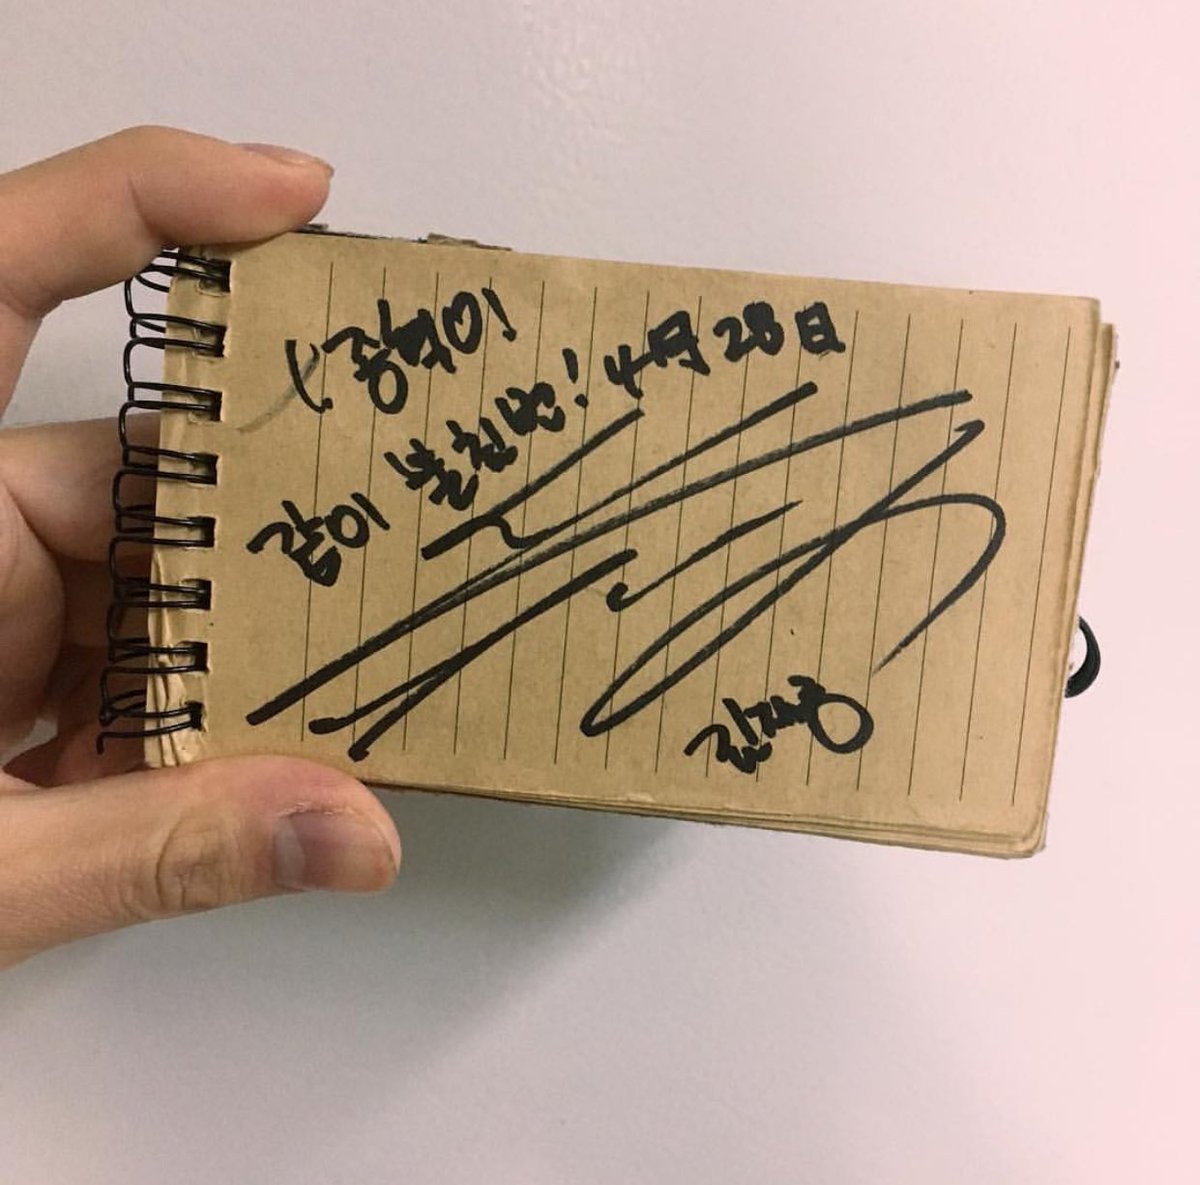 종혁이!
같이 불친번! 4月 28日
김재중